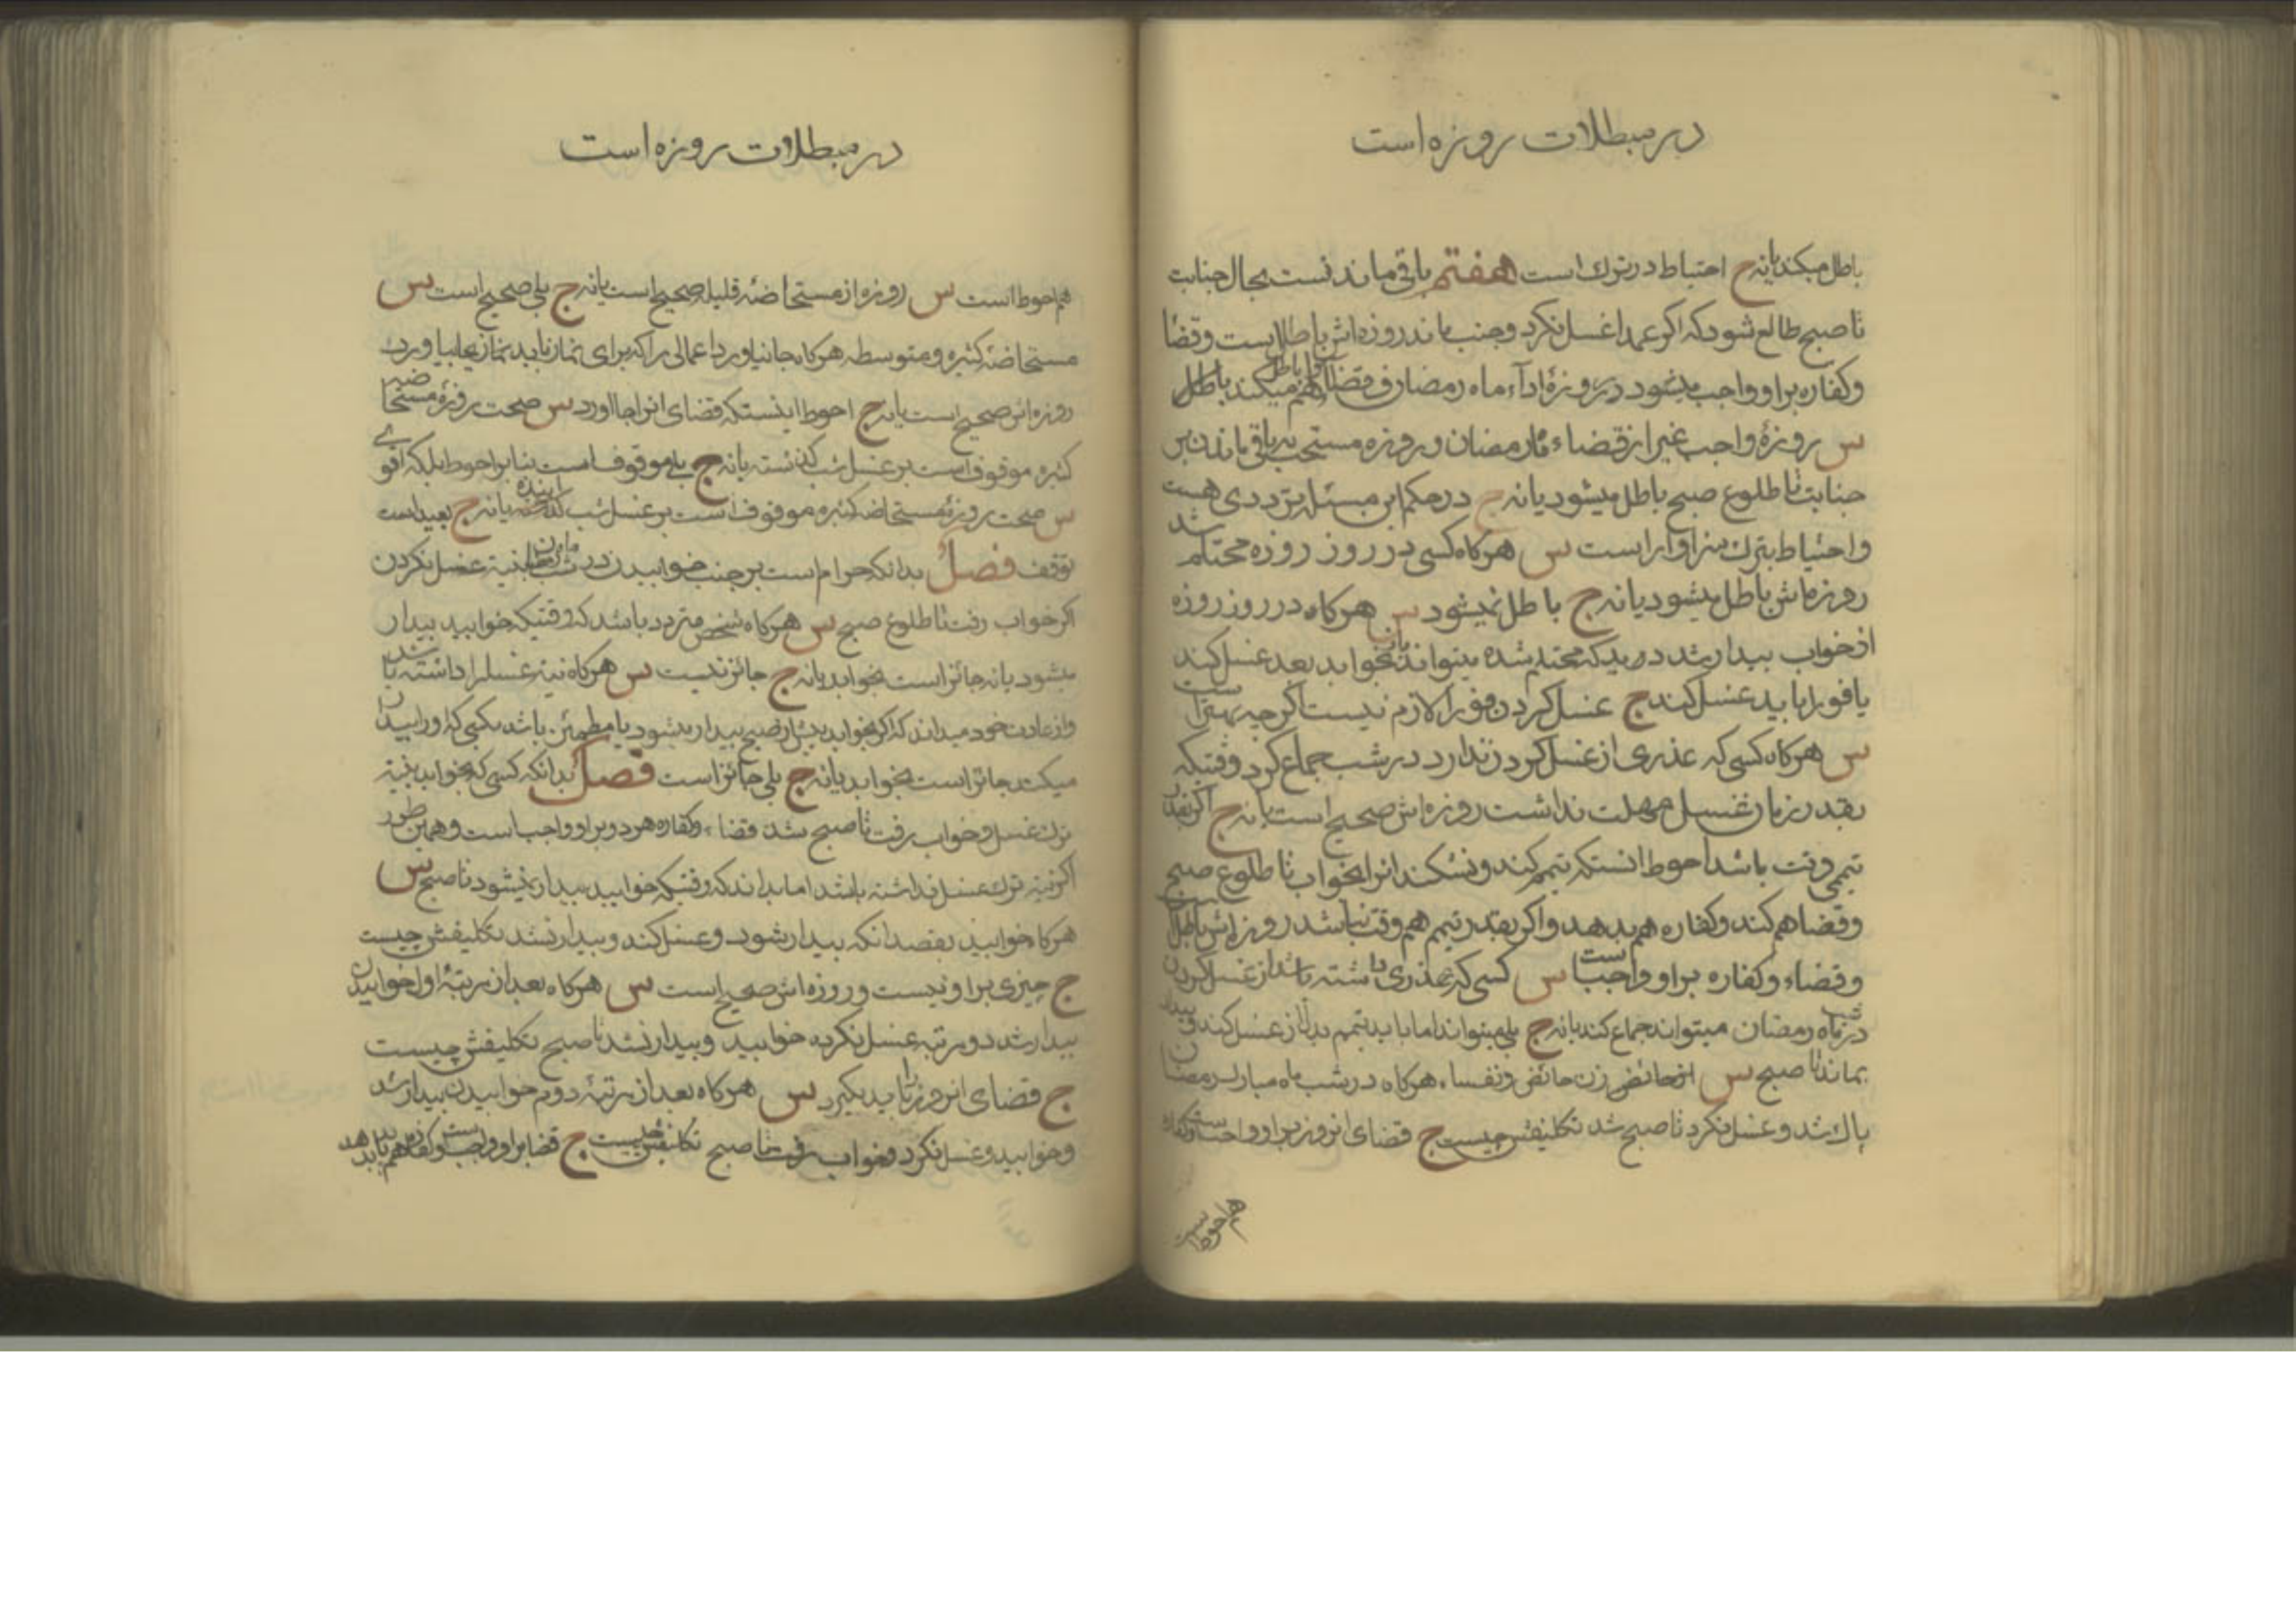 در مبطلات روزه است
باطل میکند یا نه ج احتیاط در ترک است هفتم باقی ماندنست بحال جنابت
تا صبح طالع شود که اگر عمدا غسل نکرد و جنب ماند روزه اش باطلست و قضا
و کفاره براو واجب میشود در روزهٔ اداء ماه رمضان و قضاء هم میکند باطل
س روزهٔ واجب غیر از قضاء ماه رمضان و روزه مستحب بباقی ماندن بر
جنابت تا طلوع صبح باطل میشود یا نه ج در حکم این مسئله ترددی هست
و احتیاط بترک سزاوار است س هرکاه کسی در روز روزه محتلم شد
روزه اش باطل میشود یا نه ج باطل نمیشود س هرکاه در روز روزه
از خواب بیدار شد دید که محتلم شده میتواند بخوابد بعد غسل کند
یا فورا باید غسل کند ج غسل کردن فورا لازم نیست اگرچه بهتر است
س هرکاه کسی که عذری از غسل کردن ندارد در شب جماع کرد وقتیکه
بقدر زمان غسل مهلت نداشت روزه اش صحیح است یا نه ج اگر بقدر
تیممی وقت باشد احوط انستکه تیمم کند و نشکند انرا بخواب تا طلوع صبح
و قضا هم کند و کفاره هم بدهد و اگر بقدر تیمم هم وقت نباشد روزه اش باطل است
و قضاء و کفاره براو واجب است س کسی که عذری داشته باشد از غسل کردن
در شب ماه رمضان میتواند جماع کند یا نه ج بلی میتواند اما باید تیمم بدل از غسل کند و بیدار
بماند تا صبح س زن حائض و نفساء هرکاه در شب ماه مبارک رمضان
پاک شد و غسل نکرد تا صبح شد تکلیفش چیست ج قضای انروز براو واجب است و کفاره
هم احوط است
در مبطلات روزه است
هم احوط است س روزه از مستحاضهٔ قلیله صحیح است یا نه ج بلی صحیح است س
مستحاضهٔ کثیره و متوسطه هرکاه بجا نیاورد اعمالی را که برای نماز باید بجا بیاورد
روزه اش صحیح است یا نه ج احوط اینستکه قضای انرا بجا اورد س صحت روزهٔ مستحاضه
کثیره موقوف است بر غسل شب گذشته یا نه ج بلی موقوف است بنابر احوط بلکه اقوی
س صحت روزهٔ مستحاضه کثیره موقوف است بر غسل شب اینده یا نه ج بعید است
توقف فصل بدانکه حرام است بر جنب خوابیدن در شب ماه رمضان بنیة غسل نکردن
اگر خواب رفت تا طلوع صبح س هرکاه شخص متردد باشد که وقتیکه خوابید بیدار
میشود یا نه جائز است بخوابد یا نه ج جائز نیست س هرکاه نیة غسل را داشته باشد
و از عادت خود میداند که اگر بخوابد پیش از صبح بیدار میشود یا مطمئن باشد بکسی که او را بیدار
میکند جائز است بخوابد یا نه ج بلی جائز است فصل بدانکه کسی که بخوابد بنیة
ترک غسل و خواب رفت تا صبح شد قضاء و کفاره هردو براو واجب است و همین طور
اگر نیة ترک غسل نداشته باشد اما بداند که وقتیکه خوابید بیدار نمیشود تا صبح س
هرکاه خوابید بقصد انکه بیدار شود و غسل کند و بیدار نشد تکلیفش چیست
ج چیزی براو نیست و روزه اش صحیح است س هرکاه بعد از مرتبهٔ اول خوابیدن
بیدار شد دو مرتبه غسل نکرده خوابید و بیدار نشد تا صبح تکلیفش چیست
ج قضای انروز را باید بگیرد س هرکاه بعد از مرتبهٔ دوم خوابیدن بیدار شد
و خوابید و غسل نکرد و خواب رفت تا صبح تکلیفش چیست ج قضا براو واجب است و کفاره هم باید بدهد